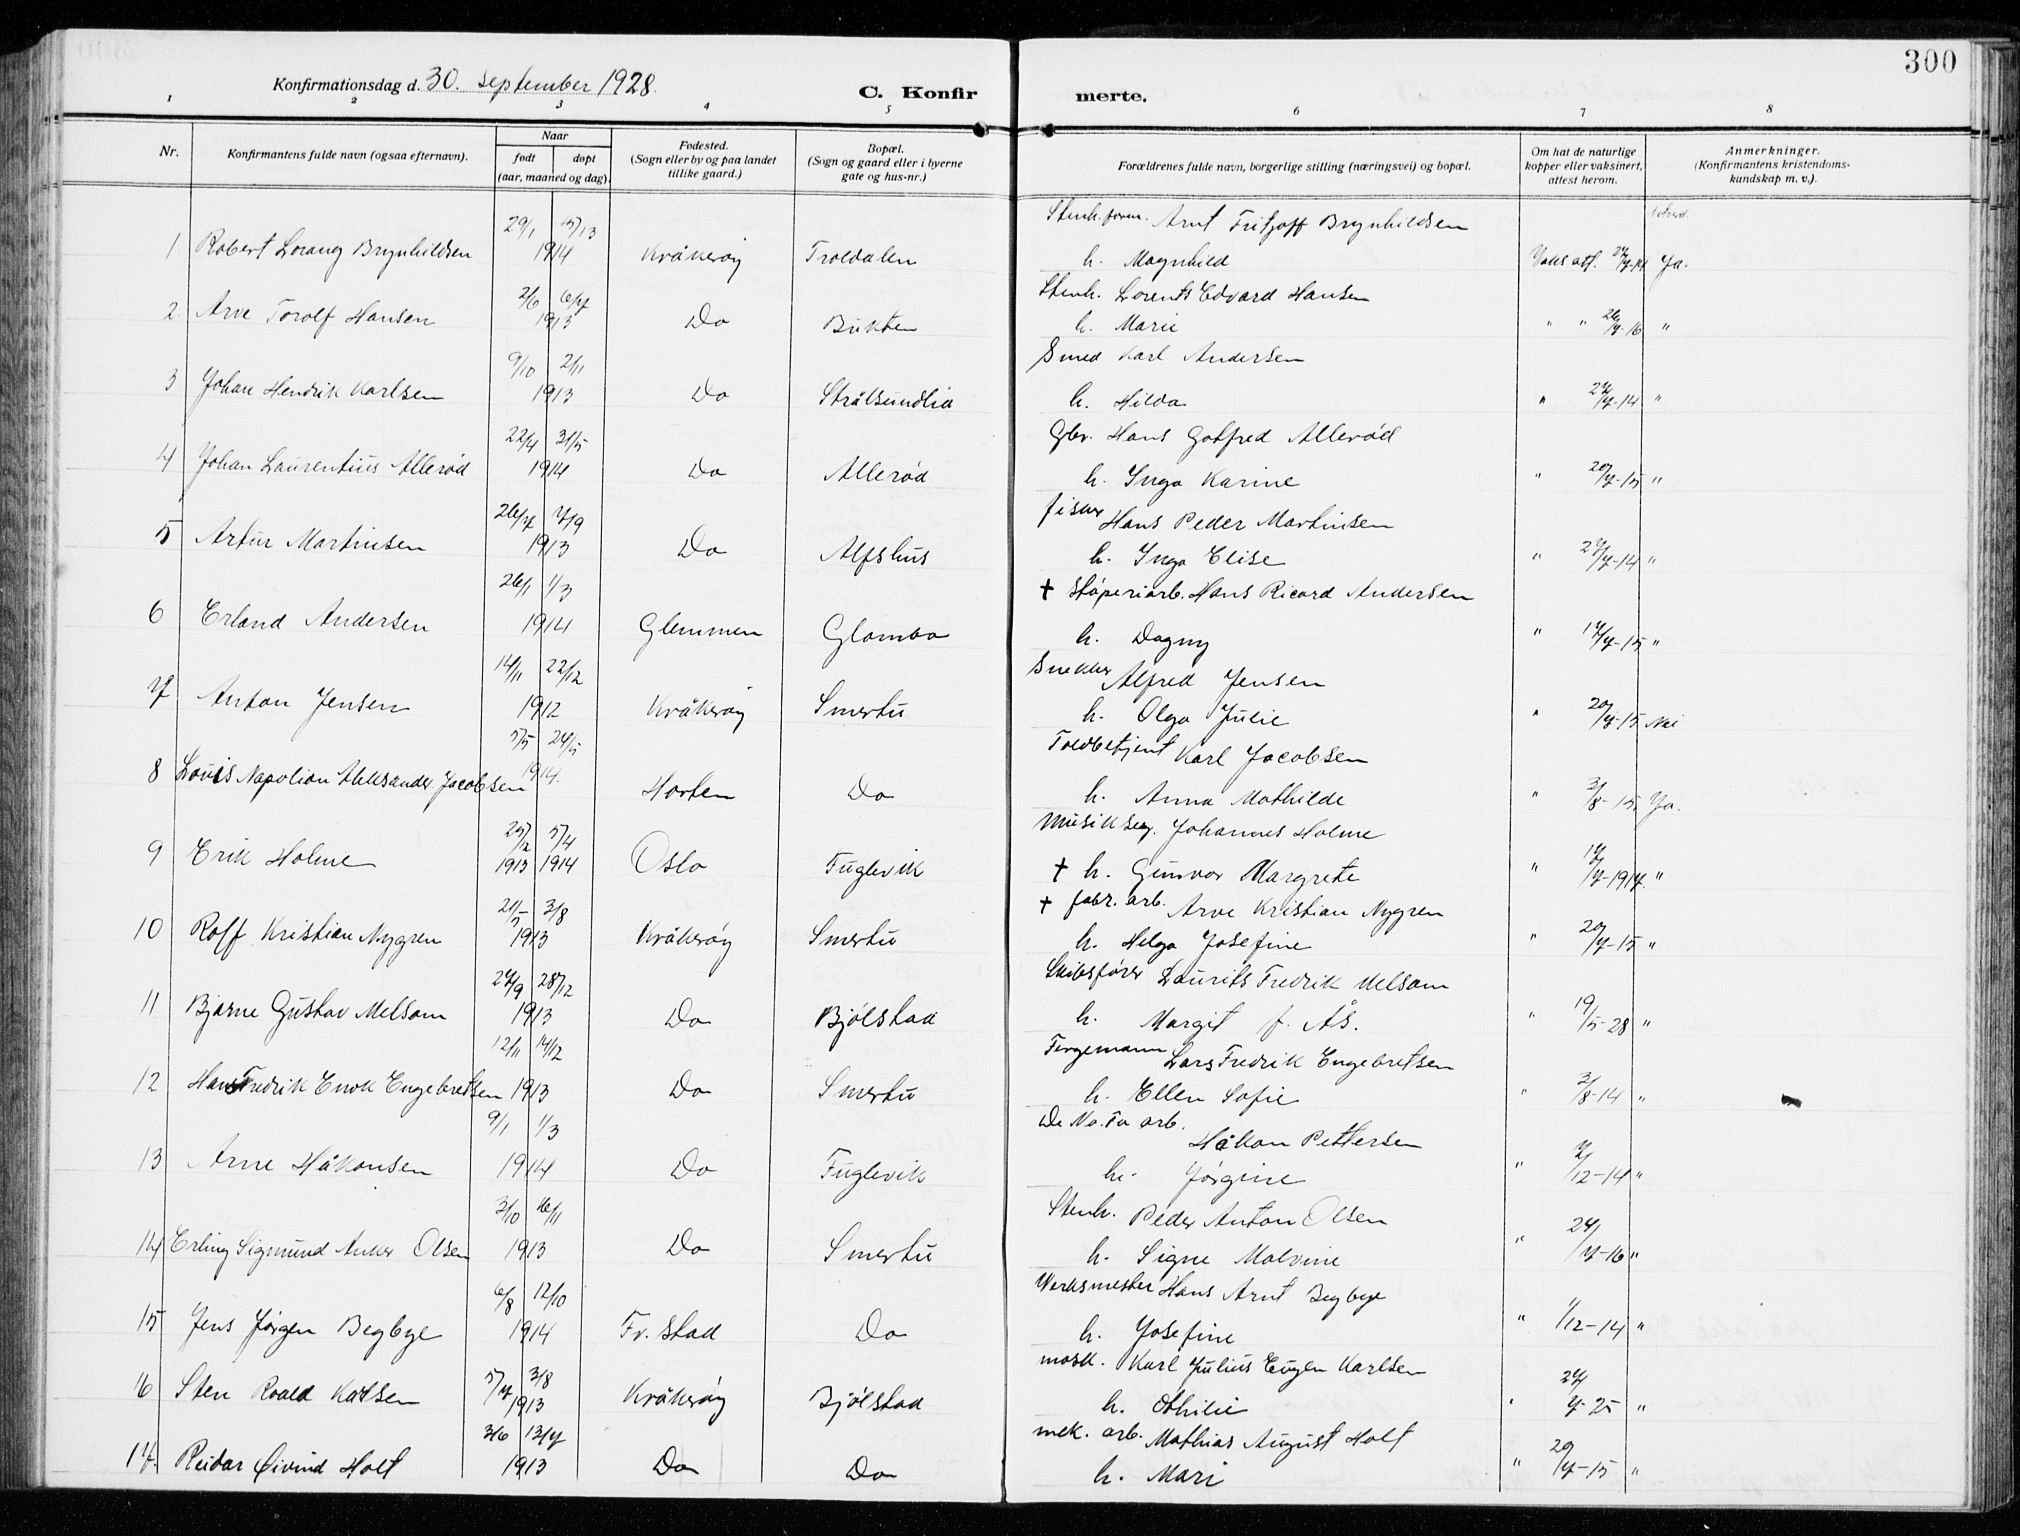 300
Konfirmationsdag d. 30. september 1928.
C. Konfirmerte.
1 2 3 4 5 6 7 8
Nr.
Konfirmantens fulde navn (ogsaa efternavn).
Naar
født døpt
(aar, maaned og dag).
Fødested.
(Sogn eller by og paa landet
tillike gaard.)
Bopæl.
(Sogn og gaard eller i byerne
gate og hus-nr.)
Forældrenes fulde navn, borgerlige stilling (næringsvei) og bopæl.
Om hat de naturlige
kopper eller vaksinert,
attest herom.
Anmerkninger.
(Konfirmantens kristendoms-
kundskap m. v.).
29/1 5/13 Stenh. form. Arnt Fritjoff Brynhildsen
1 Robert Lorang Brynhildsen 1914 Kråkerøy Troldalen h. Magnhild Vaks att. 27/7-14 Ja.
2/6 6/7 Stenh. Lorents Edvard Hansen
2 Arve Torolf Hansen 1913 Do Bukten h. Marie " " 26/7-16 "
9/10 2/11 Smed Karl Andersen
3 Johan Hendrik Karlsen 1913 Do Strålsundlia h. Hilda " 27/7-14 "
22/4 31/5 Gbr. Hans Gotfred Allerød
4 Johan Laurentius Allerød 1914 Do Allerød h. Inga Karine " 20/7-15 "
26/7 7/9 fisker Hans Peder Martinsen
5 Artur Martinsen 1913 Do Alfshus h. Inga Elise " 27/7-14 "
26/1 1/3 † støperiarb. Hans Ricard Andersen
6 Erland Andersen 1914 Glemmen Glombo h. Dagny " 17/7-15 "
14/11 22/12 Snekker Alfred Jensen
7 Anton Jensen 1912 Kråkerøy Smertu h. Olga Julie " 20/7-15 Nei
5/5 24/5 Toldbetjent Karl Jacobsen
8 Louis Napolion Aleksander Jacobsen 1914 Horten Do h. Anna Mathilde " 3/8-15 Ja.
25/12 5/4 Musikseg. Johannes Holme
9 Erik Holme 1913 1914 Oslo Fuglevik † h. Gunvor Margrete " 17/7-1917 "
21/5 3/8 † fabr. arb. Arve Kristian Nygren
10 Rolf Kristian Nygren 1913 Kråkerøy Smertu h. Helga Josefine " 20/7-15 "
27/9 28/12 Skibsfører Laurits Fredrik Melsom
11 Bjarne Gustav Melsom 1913 Do Bjølstad h. Margit f. Ås. " 19/5-28 "
12/11 14/12 Fergemann Lars Fredrik Engebretsen
12 Hans Fredrik Enok Engebretsen 1913 Do Smertu h. Ellen Sofie " 3/8-14 "
9/1 1/3 De No. Fa arb. Håkon Pettersen
13 Arne Håkonsen 1914 Do Fuglevik h. Jørgine " 7/12-14 "
3/10 16/11 Stenh. Peder Anton Olsen
14 Erling Sigmund Anker Olsen 1913 Do Smertu h. Signe Malvine " 24/7-16 "
6/8 12/10 Verksmester Hans Arnt Begbye
15 Jens Jørgen Begbye 1914 Fr. stad Do h. Josefine " 1/12-14 "
5/7 3/8 mask. Karl Julius Eugen Karlsen
16 Sten Roald Karlsen 1913 Kråkerøy Bjølstad h. Othilie " 24/7-25 "
3/6 13/7 mek. arb. Mathias August Holt
17. Reidar Øivind Holt 1913 Do Do h. Mari " 20/7-15 "